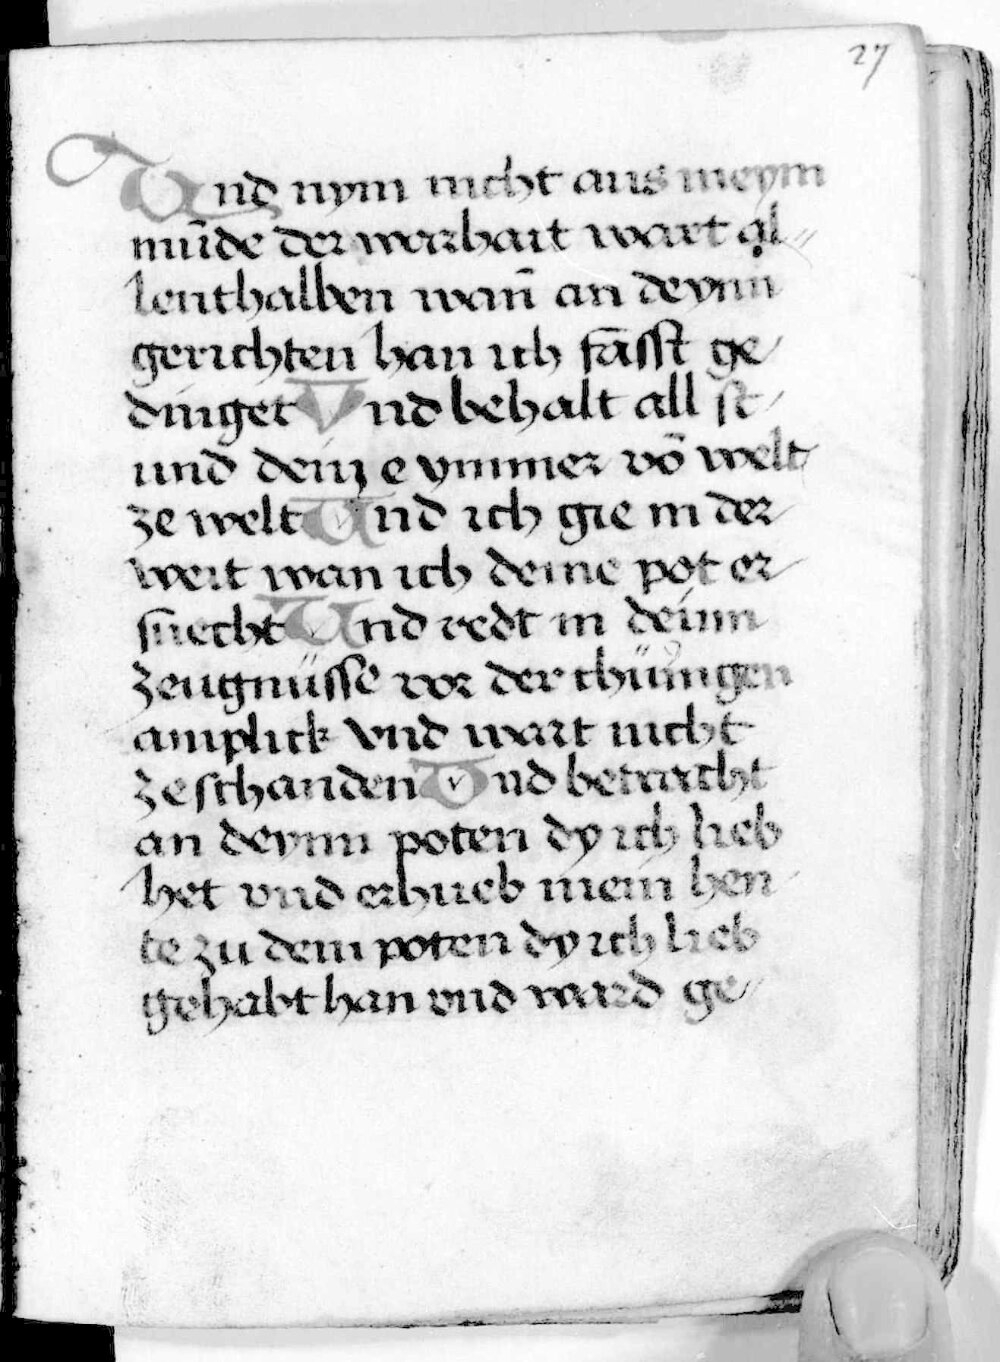 27
Vnd nym nicht aus meym
mu̅de der warhait wart al„
lenthalben wan̅ an deynn
gerichten han ich fa̅sst ge
dinget Vnd behalt all st
und dein e ymmer vo̅ welt
ze welt Vnd ich gie in der
weit wan ich deine pot er
suecht Vnd redt in deinn
zeugnüsse vor der chüningen
amplick vnd wart nicht
ze schanden Vnd betracht
an deynn poten dy ich lieb
het vnd erhueb mein hen
te zu dem poten dy ich lieb
gehabt han vnd ward ge